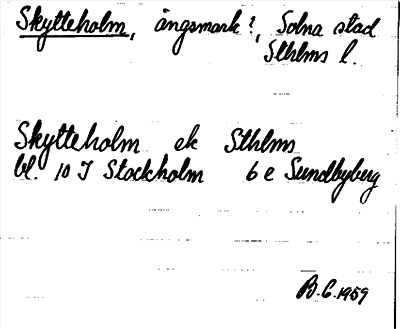 Skytteholm, ängsmark?, Solna stad
Sthlms l.
Skytteholm ek Sthlms
bl. 10 I Stockholm 6 e Sundbyberg
B.G. 1959